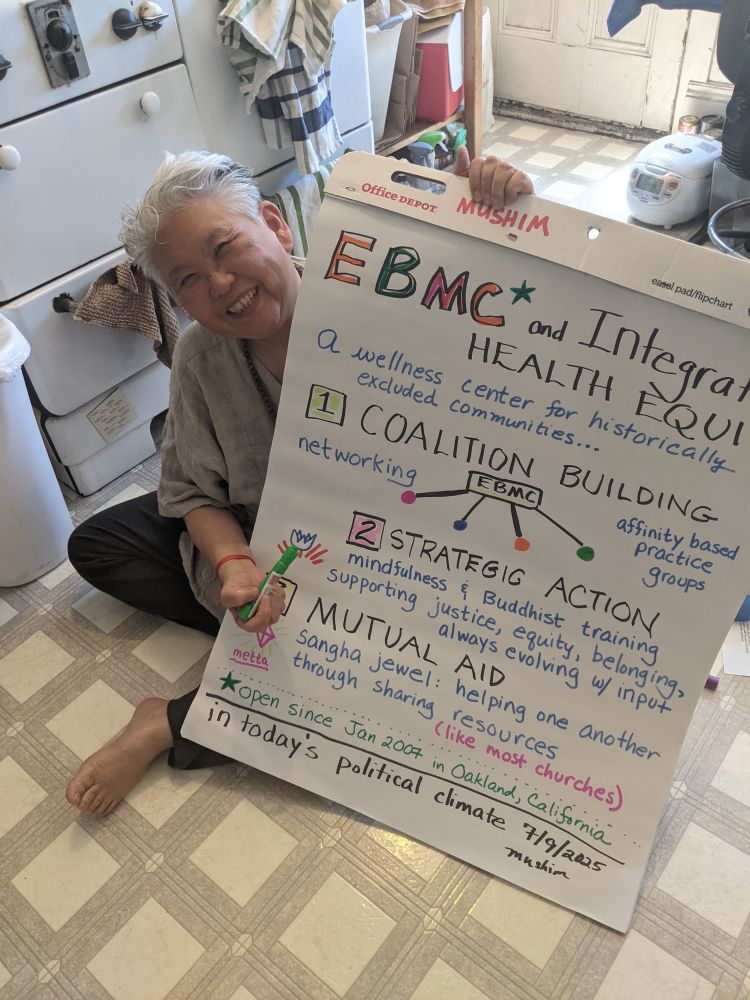 Office DEPOT. MUSHIM
easel pad/flipchart
EBMC* and Integrat
HEALTH EQUI
A wellness center for historically
excluded communities...
1 COALITION BUILDING
networking
EBMC
affinity based
practice
groups
2 STRATEGIC ACTION
mindfulness & Buddhist training
supporting justice, equity, belonging,
always evolving w/ input
MUTUAL AID
metta
sangha jewel: helping one another
through sharing resources
(like most churches)
*open since Jan 2007 in Oakland, California
in today's political climate 7/9/2025
mushim